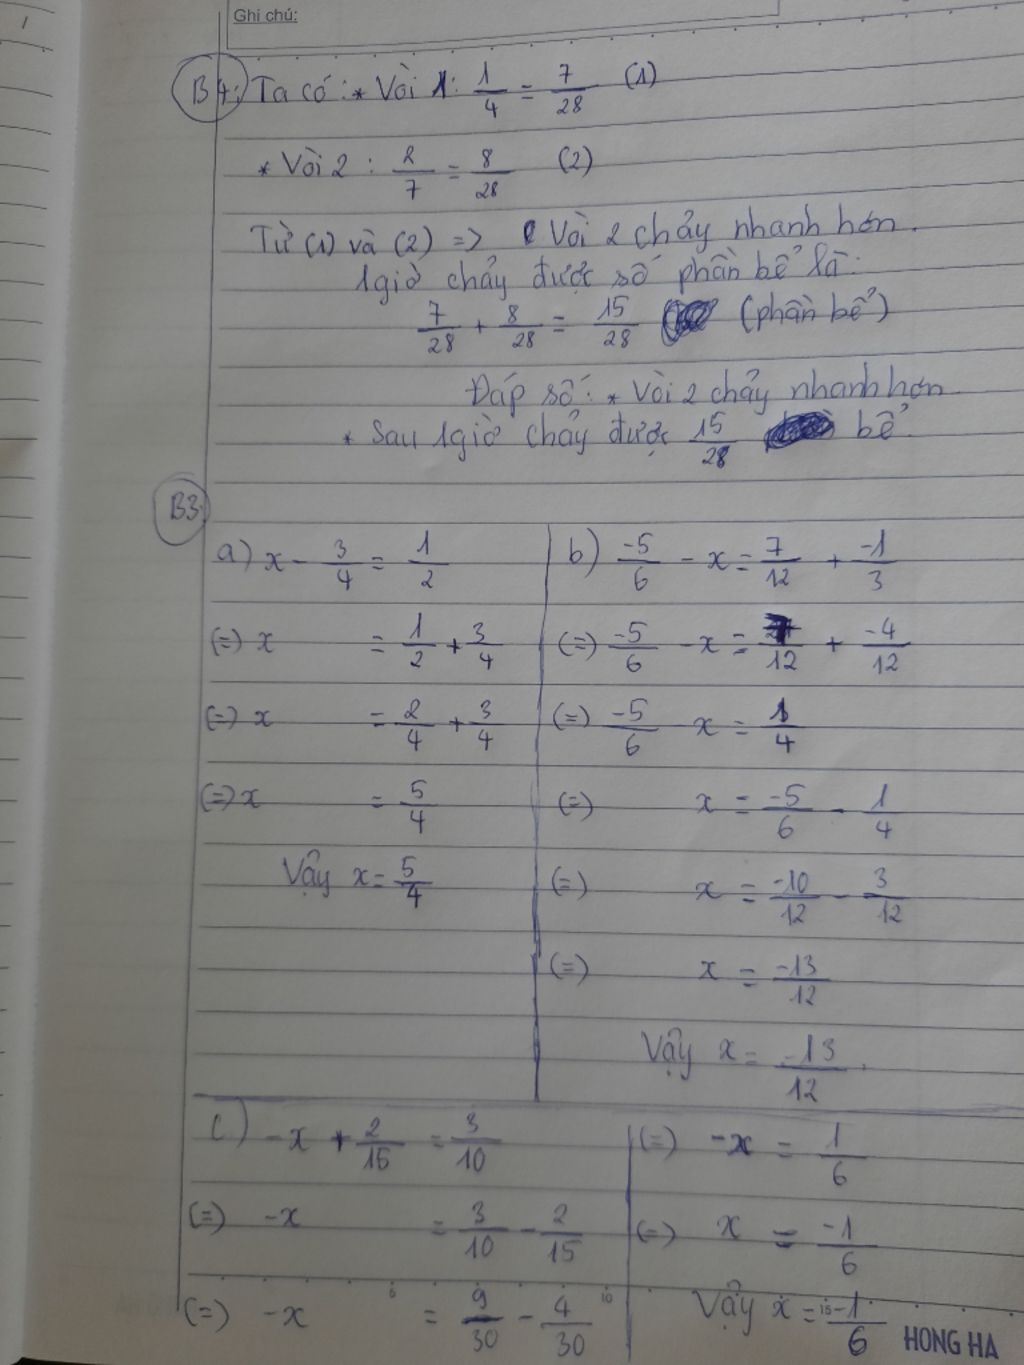 Ghi chú:
B4: Ta có: * Vòi 1: 1/4 = 7/28 (1)
* Vòi 2 : 2/7 = 8/28 (2)
Từ (1) và (2) => Vòi 2 chảy nhanh hơn.
1giờ chảy được số phần bể là:
7/28 + 8/28 = 15/28 (phần bể)
Đáp số: * Vòi 2 chảy nhanh hơn
* Sau 1giờ chảy được 15/28 bể.
B3
a) x - 3/4 = 1/2
(=) x = 1/2 + 3/4
(=) x = 2/4 + 3/4
(=) x = 5/4
Vậy x = 5/4
b) -5/6 - x = 7/12 + -1/3
(=) -5/6 - x = 7/12 + -4/12
(=) -5/6 - x = 1/4
(=) x = -5/6 - 1/4
(=) x = -10/12 - 3/12
(=) x = -13/12
Vậy x = -13/12.
c) -x + 2/15 = 3/10
(=) -x = 3/10 - 2/15
(=) -x = 9/30 - 4/30
(=) -x = 1/6
(=) x = -1/6
Vậy x = -1/6
5 10 15
HONG HA